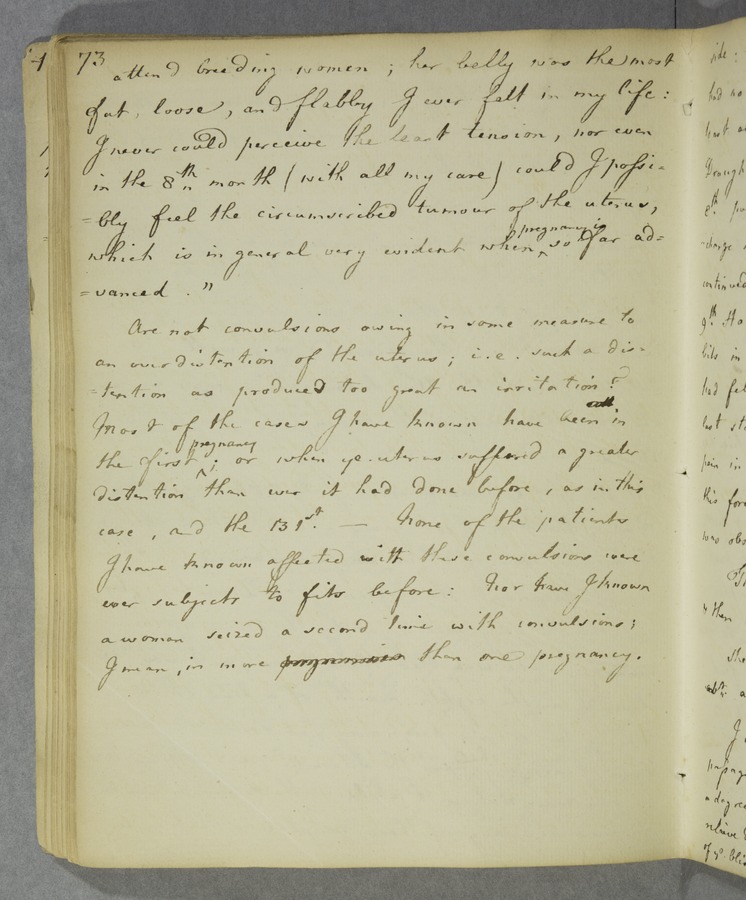 73
attend breeding women ; her belly was the most
fat, loose, and flabby I ever felt in my life :
I never could perceive the least tension, nor even
in the 8th month (with all my care) could I possi-
=bly feel the circumscribed tumour of the uterus,
which is in general very evident when ^ pregnancy is so far ad=
=vanced . "
Are not convulsions owing in some measure to
an overdistention of the uterus ; i.e. such a dis-
=tention as produced too great an irritation ?
Most of the cases I have known have been in
the first ^ pregnancy ; or when ye uterus suffered a greater
distention than ever it had done before, as in this
case, and the 131st. — None of the patients
I have known affected with these convulsions were
ever subjects to fits before : Nor have I known
a woman seized a second time with convulsions ;
I mean, in more than one pregnancy.
side :
had no
9th. Ho
bits in
had fel
pain in
this for
was obs